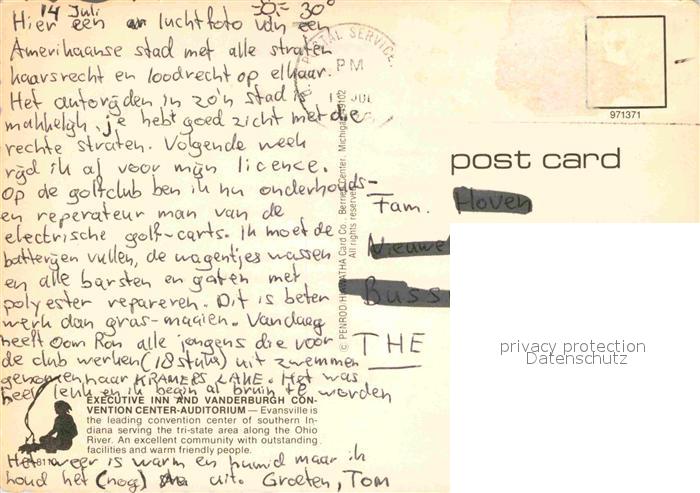 14 Juli 30 = 30°
Hier een luchtfoto van een
Amerikaanse stad met alle straten
haaksrecht en loodrecht op elkaar.
Het autorijden in zo'n stad is
makkelijk, je hebt goed zicht met die
rechte straten. Volgende week
rijd ik af voor mijn licence.
Op de golfclub ben ik nu onderhouds-
en reperateur man van de
electrische golf-carts. Ik moet de
batterijen vullen, de wagentjes wassen
en alle barsten en gaten met
polyester repareren. Dit is beter
werk dan gras-maaien. Vandaag
heeft Oom Ron alle jongens die voor
de club werken (18 stuks) uit zwemmen
genomen, naar KRAMERS LAKE. Het was
heel leuk en ik begin al bruin te worden
EXECUTIVE INN AND VANDERBURGH CON-
VENTION CENTER-AUDITORIUM — Evansville is
the leading convention center of southern In-
diana serving the tri-state area along the Ohio
River. An excellent community with outstanding
facilities and warm friendly people.
Het weer is warm en humid maar ik
houd het (nog) uit. Groeten, Tom
POSTAL SERVICE
PM
JUL
© PENROD/HIAWATHA Card Co., Berrien Center, Michigan 49102
All rights reserved
971371
post card
Fam. Hoven
Nieuwe
Buss
THE
privacy protection
Datenschutz